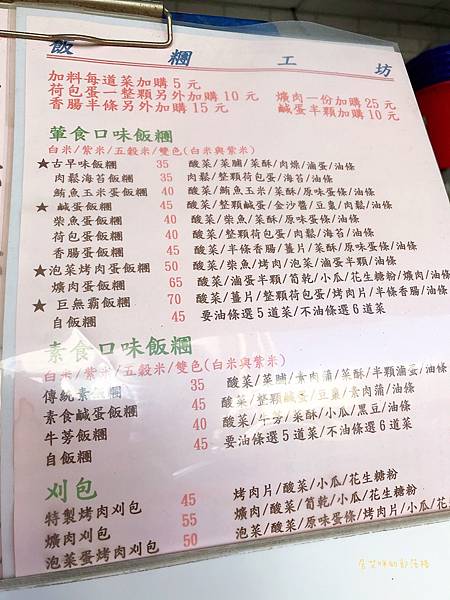 飯糰工坊
加料每道菜加購 5 元
荷包蛋一整顆另外加購 10 元 爌肉一份加購 25 元
香腸半條另外加購 15 元 鹹蛋半顆加購 10 元
葷食口味飯糰
白米/紫米/五穀米/雙色(白米與紫米)
★古早味飯糰 35 酸菜/菜脯/菜酥/肉燥/滷蛋/油條
肉鬆海苔飯糰 35 肉鬆/整顆荷包蛋/海苔/油條
鮪魚玉米蛋飯糰 40 酸菜/鮪魚玉米/菜酥/原味蛋條/油條
★ 鹹蛋飯糰 45 酸菜/整顆鹹蛋/金沙醬/豆棗/肉鬆/油條
柴魚蛋飯糰 40 酸菜/柴魚/菜酥/原味蛋條/油條
荷包蛋飯糰 40 酸菜/整顆荷包蛋/肉鬆/海苔/油條
香腸蛋飯糰 45 酸菜/半條香腸/薑片/菜酥/原味蛋條/油條
★泡菜烤肉蛋飯糰 50 酸菜/柴魚/烤肉/泡菜/滷蛋半顆/油條
爌肉蛋飯糰 65 酸菜/滷蛋半顆/筍乾/小瓜/花生糖粉/爌肉/油條
★ 巨無霸飯糰 70 酸菜/薑片/整顆荷包蛋/烤肉片/半條香腸/油條
自飯糰 45 要油條選 5 道菜/不油條選 6 道菜
素食口味飯糰
白米/紫米/五穀米/雙色(白米與紫米)
傳統素飯糰 35 酸菜/菜脯/素肉蒲/菜酥/半顆滷蛋/油條
素食鹹蛋飯糰 45 酸菜/整顆鹹蛋/豆棗/素肉蒲/油條
牛蒡飯糰 40 酸菜/牛蒡/菜酥/小瓜/黑豆/油條
自飯糰 45 要油條選 5 道菜/不油條選 6 道菜
刈包
特製烤肉刈包 45 烤肉片/酸菜/小瓜/花生糖粉
爌肉刈包 55 爌肉/酸菜/筍乾/小瓜/花生糖粉
泡菜蛋烤肉刈包 50 泡菜/酸菜/原味蛋條/烤肉片/小瓜/花